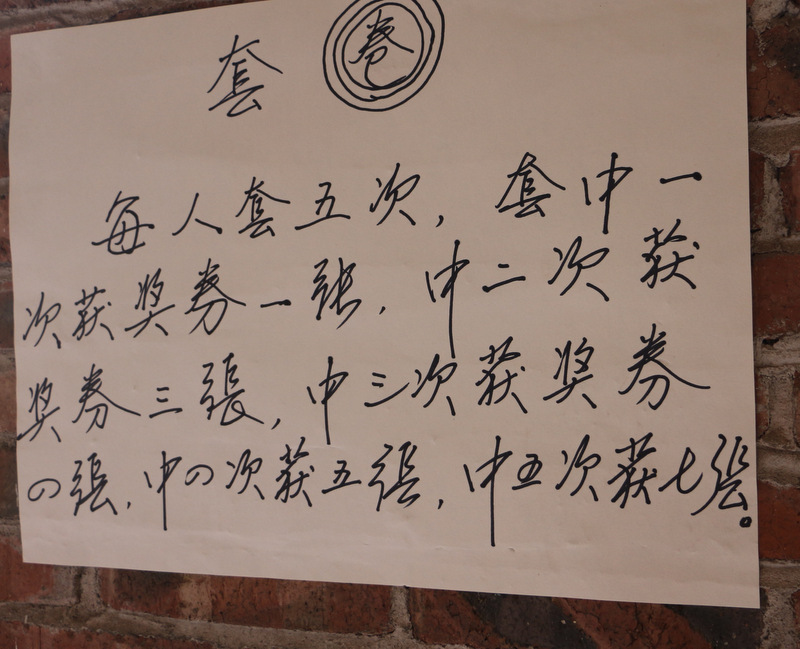 套 圈
每人套五次，套中一
次获奖券一张，中二次获
奖券三張，中三次获奖券
四張，中四次获五張，中五次获七张。